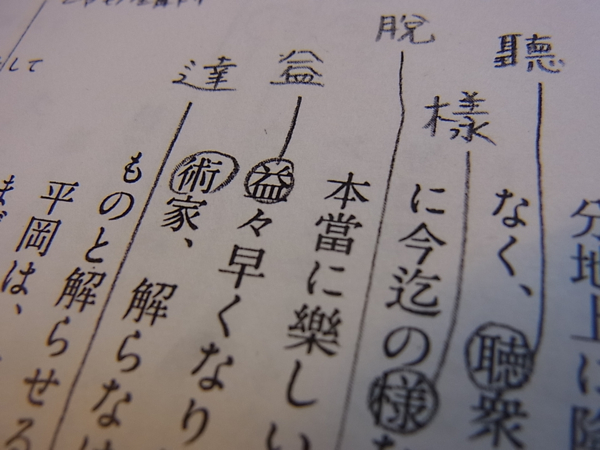 分地上に
聽
なく、聴衆
樣
に今迄の様
脱
本當に樂しい
益
益々早くなり
達
術家、解らな
ものと解らせる
平岡は、
して